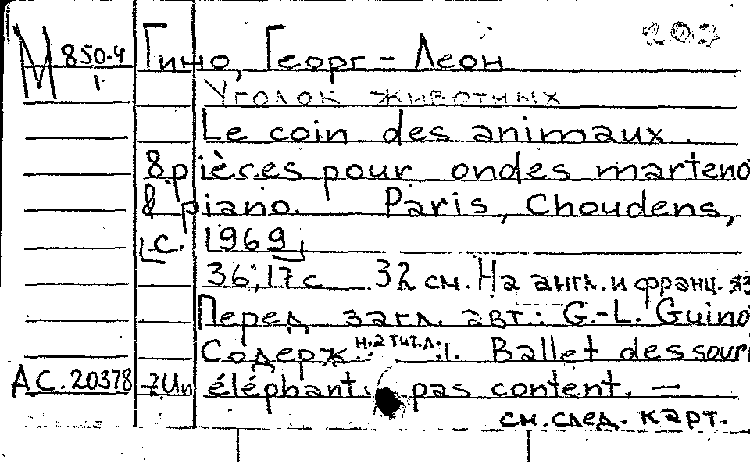 М 850-4 Гино, Георг-Леон 202
1
Уголок животных
Le coin des animaux.
8 pièces pour ondes marteno
& piano. Paris, Choudens,
[c. 1969]
36; 17 с 32 см. На англ. и франц. яз
Перед загл. авт.: G.-L. Guino
Содерж. н. 2 тит. л.: 1. Ballet des souri
A.C. 20378 2 Un éléphant pas content. —
см. след. карт.